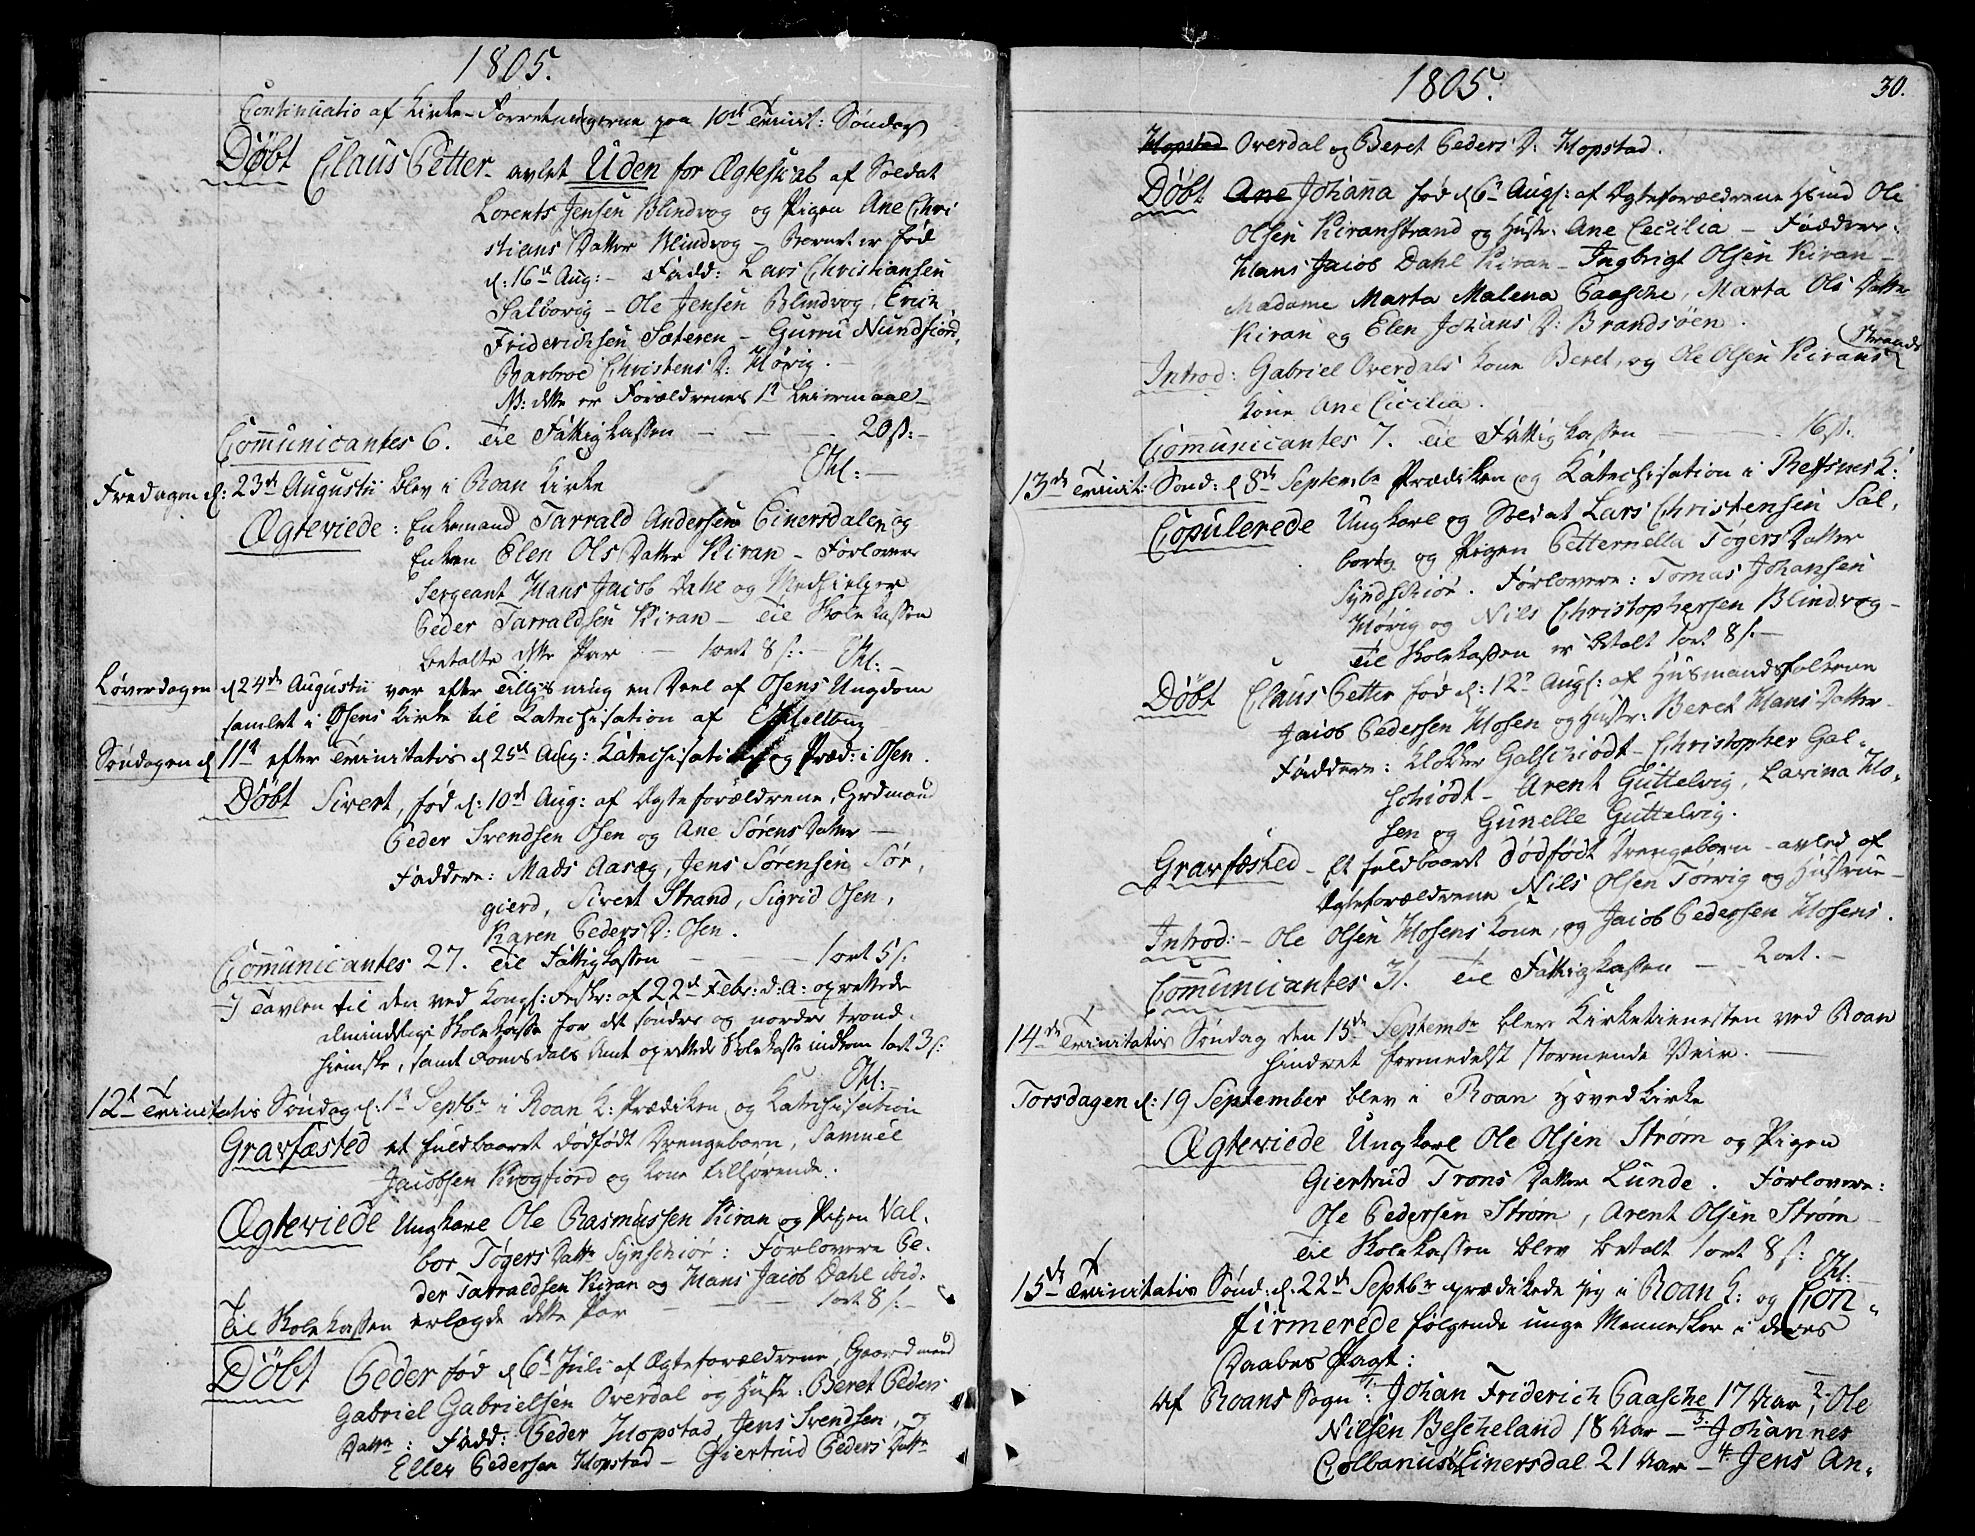 1805.
Continuatio af Kirke-Forretningerne paa 10de Trinit: Søndag
Døbt Claus Petter - avlet Uden for Ægteskab af Soldat
Lorents Jensen Blindvog og Pigen Ane Chri
stians Datter Blindvog - Barnet er fød
d: 16de Aug: - Fadd: Lars Christiansen
Salborig - Ole Jensen Blindvog, Erich
Friderichsen Sæteren - Gurru Nundfiord,
Barbroe Christens D: Hørig. -
NB: dette er Forældrenes 1te Leiermaal -
Communicantes 6. Til Fattigkassen - - - 20 s: -
Ehl: -
Fredagen d: 23de Augustii blev i Roan Kirke
Ægteviede: Enkemand Tarrald Andersen Einersdalen og
Enken Elen Ols Datter Kiran - Forlovere
Sergeant Hans Jacob Dahl og Medhielper
Peder Tarraldsen Kiran - Til Skole Kassen
betalte dette Par - 1 ort 8 s: -
Ehl: -
Løverdagen d 24de Augustii var efter Tillysning en Deel af Osens Ungdom
samlet i Osens Kirke til Katechisation af
Søndagen d 11te efter Trinitatis d 25de Aug: Katechisation og Præd: i Osen.
Døbt Sivert, fød d: 10de Aug: af Ægteforældrene, Grdmand
Peder Svendsen Osen og Ane Sørens Datter -
Faddere: Mads Aaræg, Jens Sørensen Sør,
gierd, Sivert Strand, Sigrid Osen,
Karen Peders D: Osen.
Communicantes 27. Til Fattigkassen - - - 1 ort 5 s:
I Tavlen til den ved Kongl: Reskr: af 22de Febr: d: A: oprettede
almindelige Skolekasse for det søndre og nordre Trond-
hiemske, samt Romsdals Amt oprettede Skolekasse indkom 1 ort 3 s:
Ehl: -
12te Trinitatis Søndag d: 1te Septbr i Roan K: Prædiken og Katechisation
Gravfæsted et fuldbaaret dødfødt Drengebarn, Samuel
Jacobsen Krogfiord og Kone tilhørende.
Ægteviede Ungkarl Ole Rasmussen Kiran og Pigen Val-
bor Tøgers Dattr Synschiør: Forlovere Pe-
der Tarraldsen Kiran og Hans Jacob Dahl ibid.
Til Skolekassen erlagde dette Par - - - 1 ort 8 s: -
Døbt Peder fød d 6te Juli af Ægteforældrene, Gaardmand
Gabriel Gabrielsen Overdal og Hustr: Beret Peders
Dattr: Fadd: Peder Hopstad, Jens Svendsen, og
Eller Pedersen Hopstad - Giertrud Peders Dattr
1805. 30.
Hopstad Overdal og Beret Peders D: Hopstad.
Døbt Ane Johanna fød d 6te Augs: af Ægteforældrene Hsmd Ole
Olsen Kiranstrand og Hustr: Ane Cecilia - Faddere:
Hans Jacob Dahl Kiran - Ingbrigt Olsen Kiran -
Madame Marta Malena Paasche, Marta Ols Datter
Kiran og Elen Johans D: Brandsøen.
Introd: Gabriel Overdals Kone Beret, og Ole Olsen Kirans
Strands
Kone Ane Cicilia.
Communicantes 7. Til Fattigkassen - - 16 s:
13de Trinit: Sønd: d 8de Septembr Prædiken og Katechisation i Reffsnes K:
Copulerede Ungkarl og Soldat Lars Christensen Sal-
borig og Pigen Petternella Tøgers Datter
Syndschiør. Forlovere: Tomas Johansen
Hørig og Nils Christophersen Blindvog -
Til Skolekassen er betalt 1 ort 8 s: -
Døbt Claus Petter fød d: 12te Augs: af Husmandsfolkene
Jacob Pedersen Hosen og Hustr: Beret Hans Datter -
Faddere: Klokker Galschiødt - Christopher Gal-
schiødt - Arent Guttelvig, Lavina Ho-
sen og Gunelle Guttelvig.
Gravfæsted - et fuldbaaret dødfødt Drengebarn - avled af
Ægteforældrene Nils Olsen Tørvig og Hustrue -
Introd: - Ole Olsen Hosens Kone, og Jacob Pedersen Hosens.
Communicantes 31. Til Fattigkassen - - 2 ort. -
14de Trinitatis Søndag den 15de Septembr blev Kirketienesten ved Roan
hindret formedelst stormende Veir. -
Torsdagen d: 19 September blev i Roan Hovedkirke
Ægteviede Ungkarl Ole Olsen Strøm og Pigen
Giertrud Trons Datter Lunde. Forlovere:
Ole Pedersen Strøm, Arent Olsen Strøm -
Til Skolekassen blev betalt 1 ort 8 s:
Ehl: -
15de Trinitatis Sønd: d. 22de Septbr prædikede jeg i Roan K: og Con-
firmerede følgende unge Mennesker i deres
Daabes Pagt:
Af Roans Sogn 1: Johan Friderich Paasche 17 Aar, 2. Ole
Nielsen Bescheland 18 Aar - 3. Johannes
Colbanus: Einersdal 21 Aar - 4. Jens An-